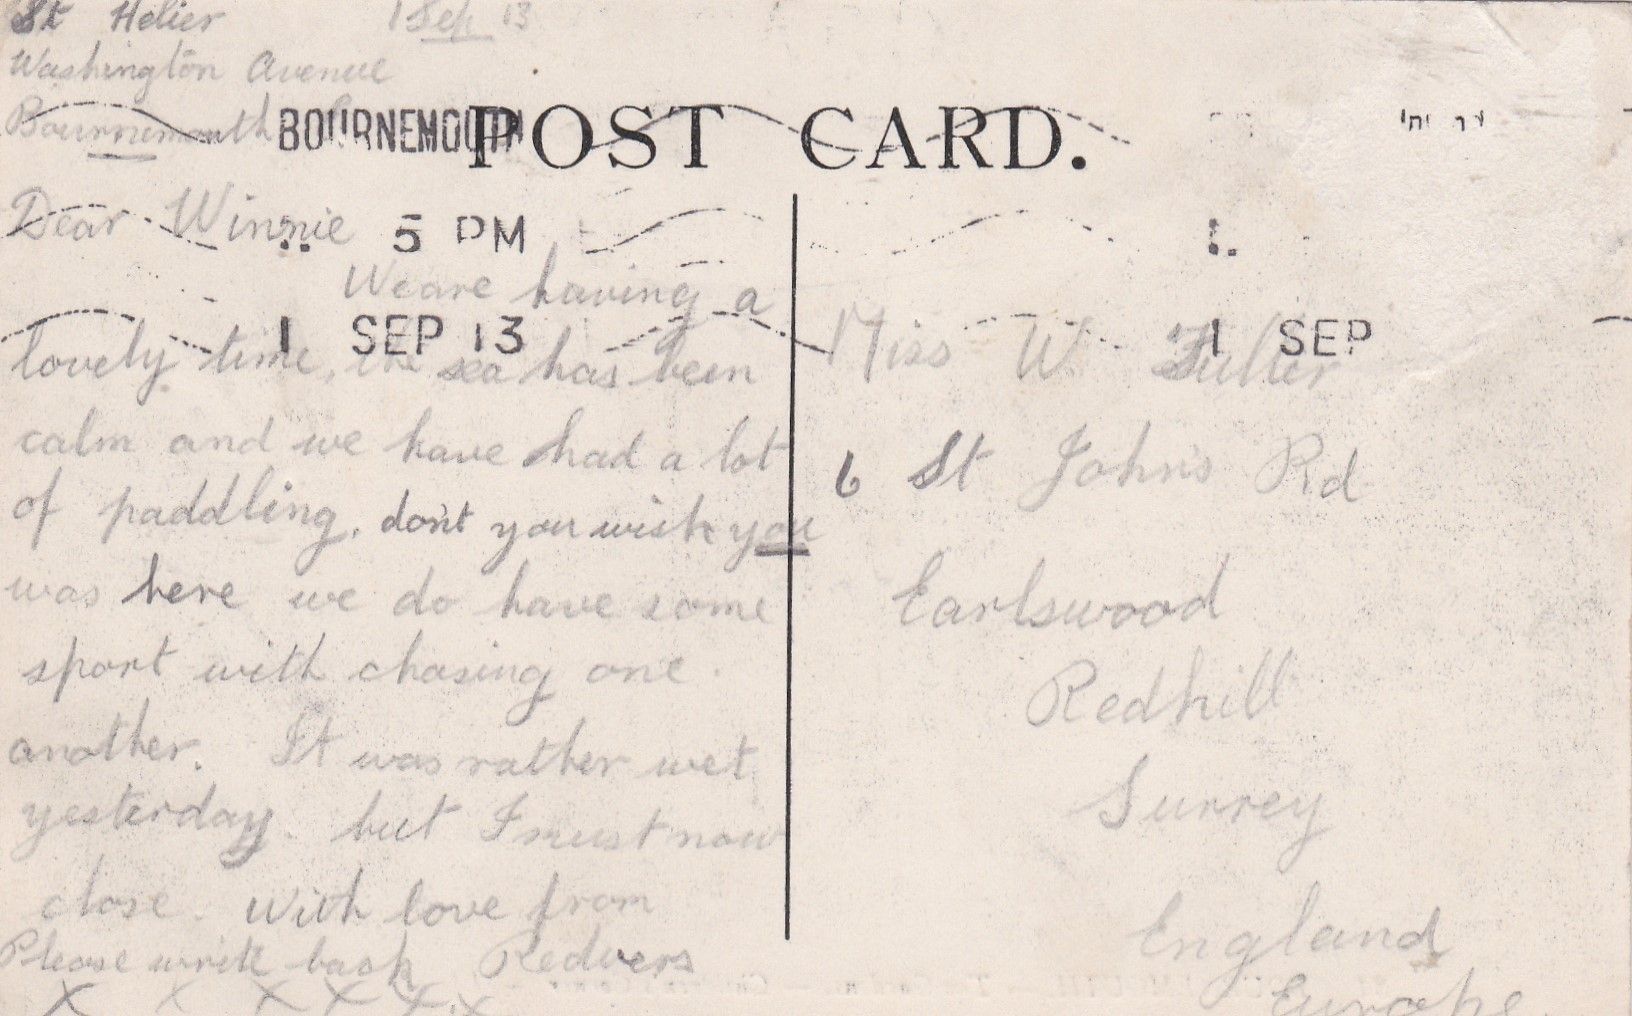 St Helier 1 Sep 13
Washington Avenue
Bournemouth
BOURNEMOUTH
POST CARD.
5 PM
1 SEP 13
1 SEP
Dear Winnie
We are having a
lovely time, the sea has been
calm and we have had a lot
of paddling. don't you wish you
was here we do have some
sport with chasing one
another. It was rather wet
yesterday. but I must now
close. With love from
Please write back Redvers
X X X X X X
Miss W. Fuller
6 St John's Rd
Earlswood
Redhill
Surrey
England
Europe.